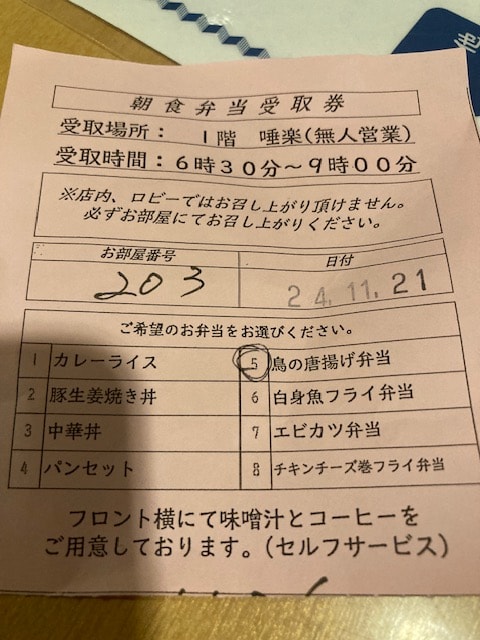 朝食弁当受取券
受取場所： 1階 唾楽(無人営業)
受取時間：６時３０分～９時００分
※店内、ロビーではお召し上がり頂けません。
必ずお部屋にてお召し上がりください。
お部屋番号 日付
203 24.11.21
ご希望のお弁当をお選びください。
1 カレーライス 5 鳥の唐揚げ弁当
2 豚生姜焼き丼 6 白身魚フライ弁当
3 中華丼 7 エビカツ弁当
4 パンセット 8 チキンチーズ巻フライ弁当
フロント横にて味噌汁とコーヒーを
ご用意しております。(セルフサービス)